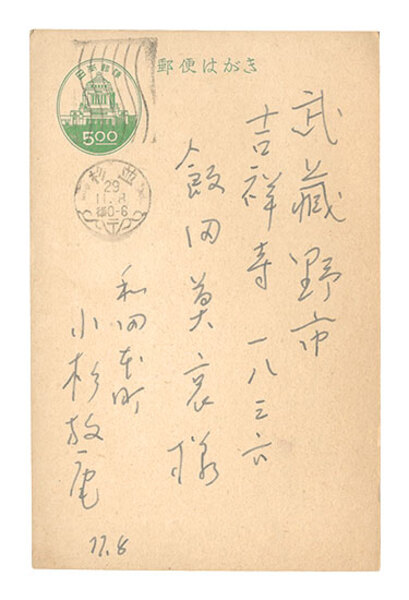 日本郵便
500
郵便はがき
杉並
29
11.8
後0-6
武蔵野市
吉祥寺一八三六
飯田莫哀様
和田本町
小杉放庵
11.8